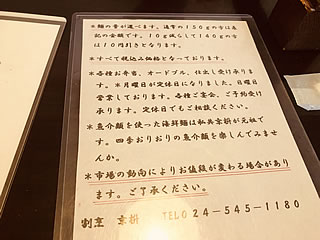 *麺の量が選べます。通常の150gの方は表
記の金額です。10g減らして140gの方
は10円引きとなります。
*すべて税込み価格となっております。
*各種お弁当、オードブル、仕出し受け承りま
す。*月曜日が定休日になりました。日曜日
営業しております。各種ご宴会、ご予約受け
承ります。定休日でもご相談ください。
*魚介類を使った海鮮麺は私共京枡が元祖で
す。四季おりおりの魚介類を楽しんでみませ
んか。
*市場の動向によりお値段が変わる場合があり
ます。ご了承ください。
割烹 京枡 TEL024-545-1180